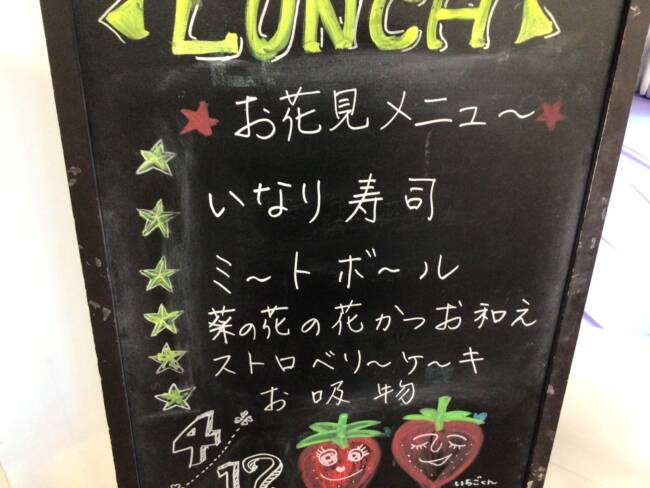 LUNCH
お花見メニュ～
いなり寿司
ミ～トボ～ル
菜の花の花かつお和え
ストロベリ～ケ～キ
お吸物
4
12
いちごくん